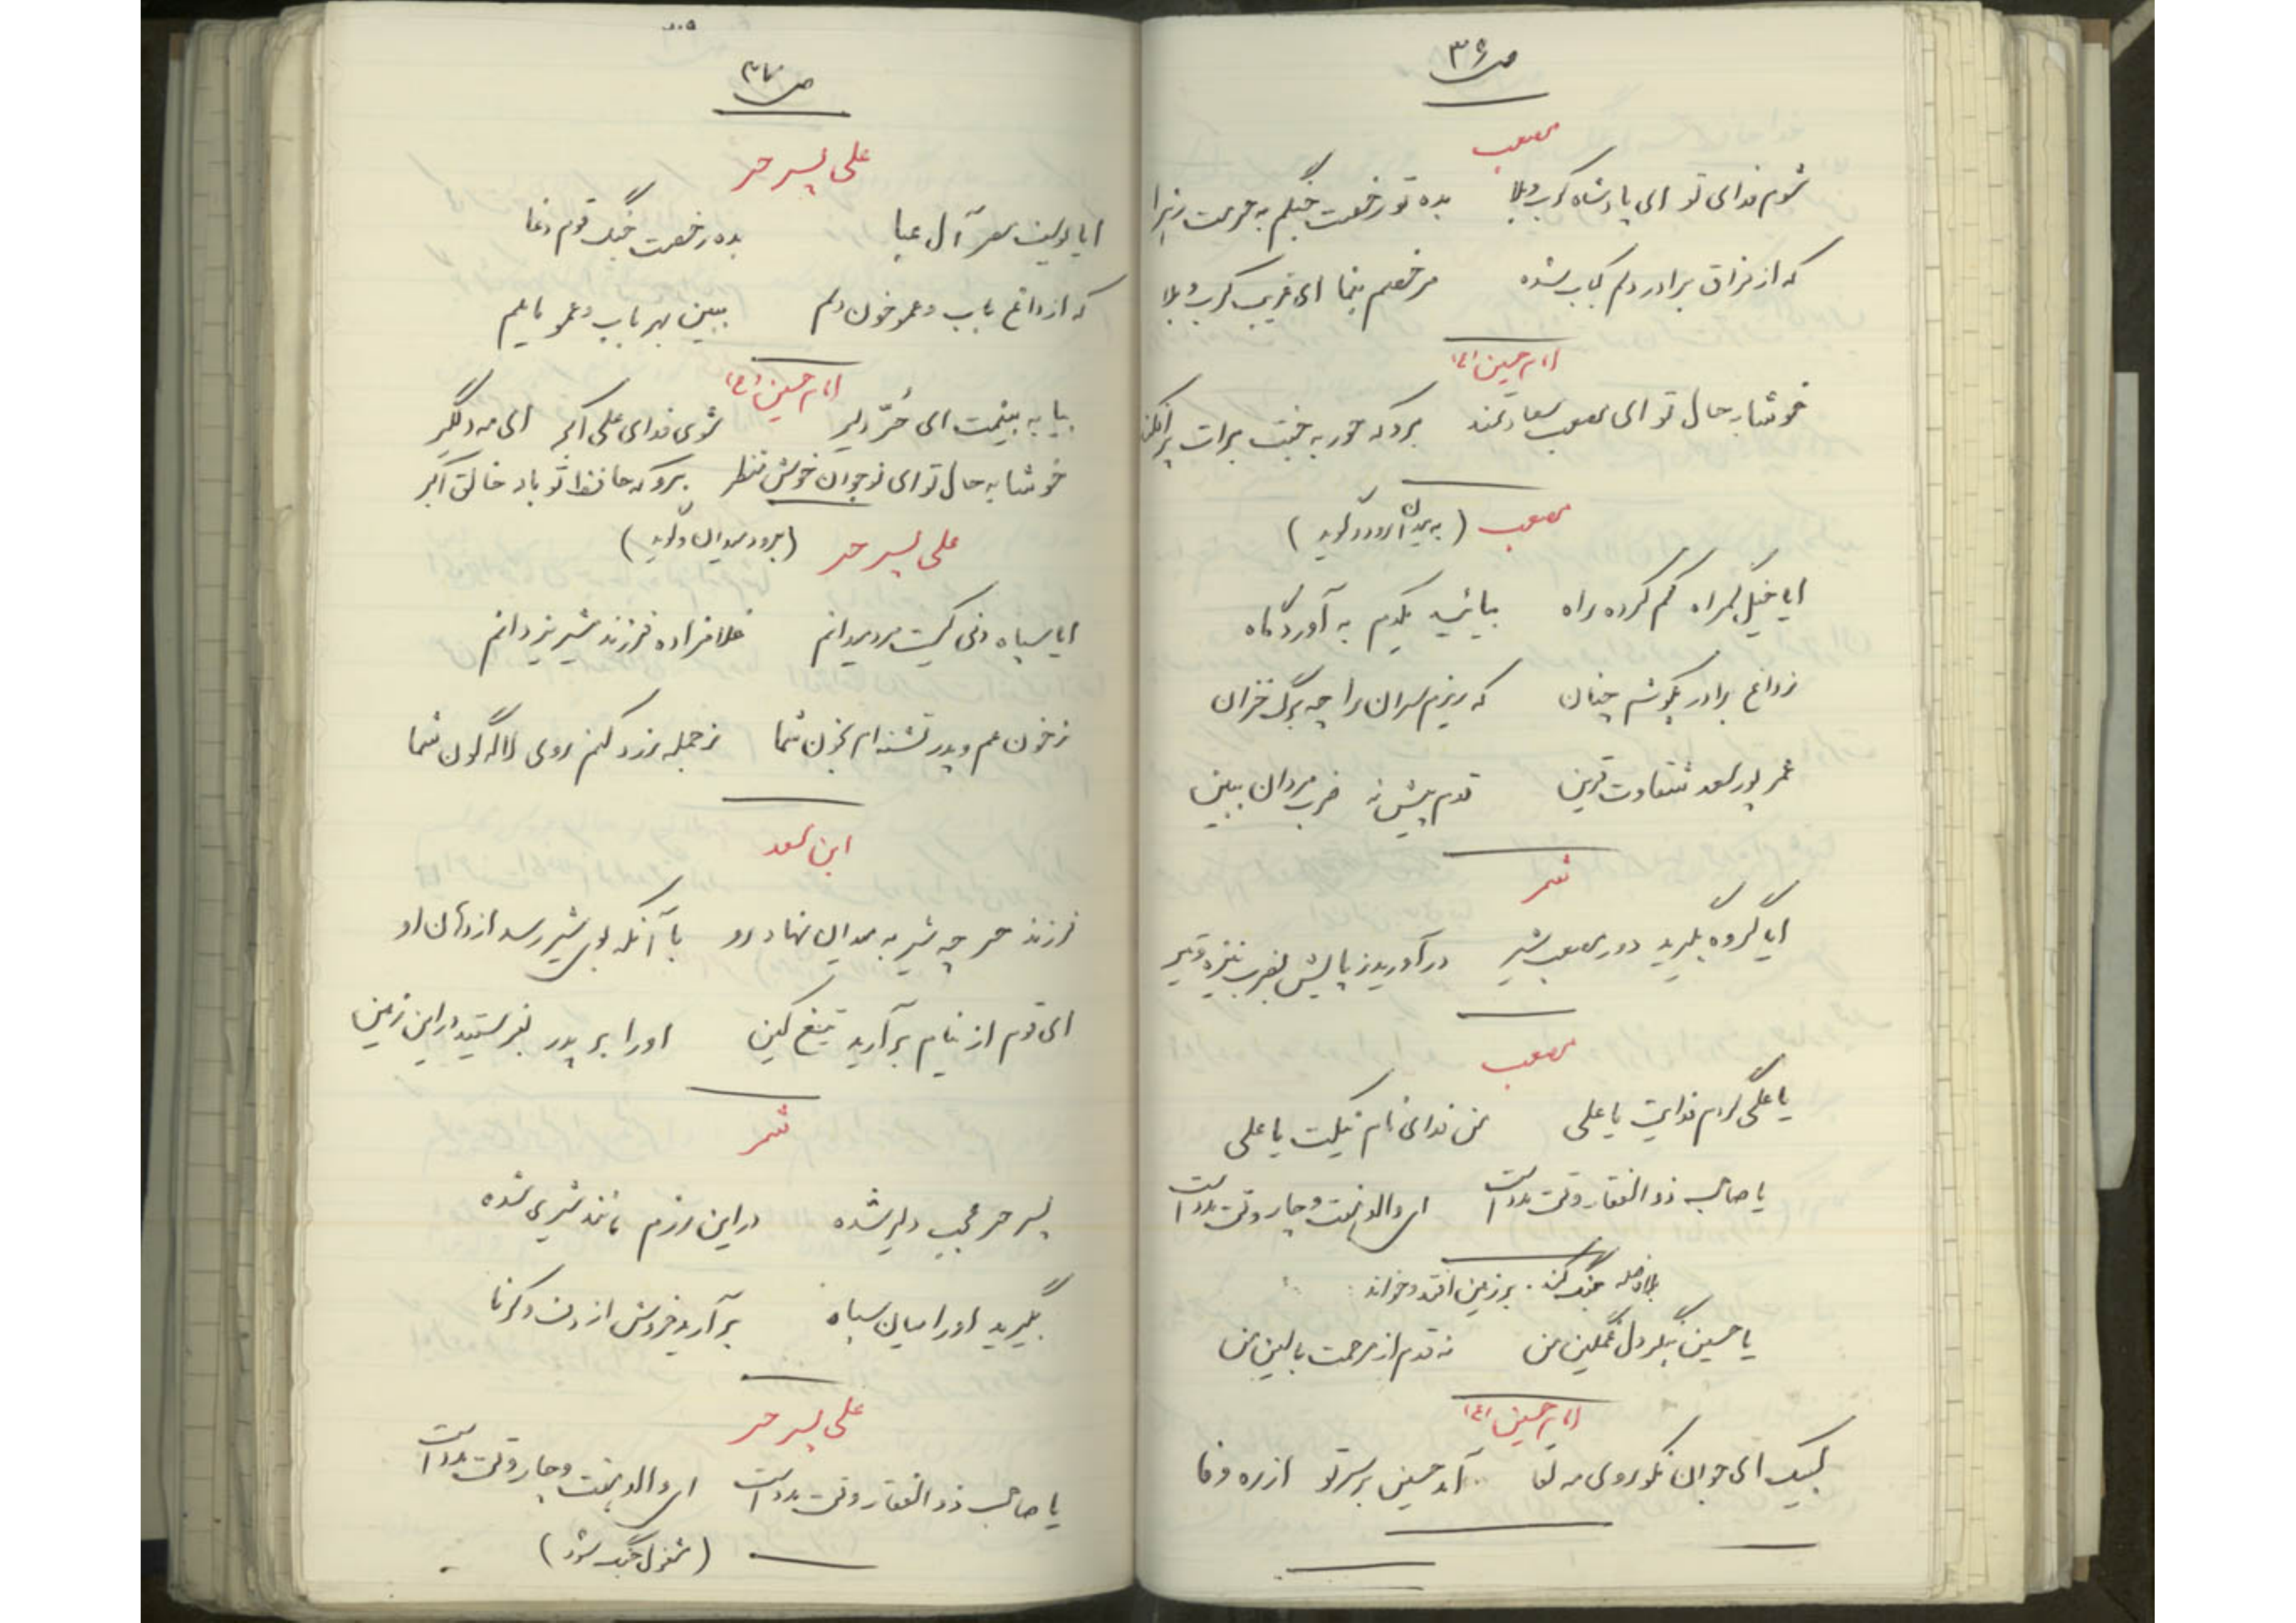 ص ۳۶
مصعب
شوم فدای تو ای پادشاه کرب و بلا بده تو رخصت جنگم به حرمت زهرا
که از فراق برادر دلم کباب شده مرخصم بنما ای غریب کرب و بلا
امام حسین (ع)
خوشا به حال تو ای مصعب سعادتمند برو که حور به جنت برات
مصعب (به میدان رود و گوید)
ایا خیل گمراه گم کرده راه بیائید یکدم به آوردگاه
ز داغ برادر بکوشم چنان که ریزم سران را چه برگ خزان
عمر پور سعد شقاوت قرین قدم پیش نه ضرب مردان ببین
شمر
ایا گروه بگیرید دور مصعب شیر در آورید ز پایش بضرب نیزه و تیر
مصعب
یا علی گردم فدایت یا علی من فدای نام نیکت یا علی
یا صاحب ذوالفقار وقت مدد است ای والد هشت و چار وقت مدد است
بلافاصله جنگ کند. بر زمین افتد و خواند:
یا حسین بنگر دل غمگین من نه قدم از مرحمت بالین من
امام حسین (ع)
لبیک ای جوان نکو روی مه لقا آمد حسین بر سر تو از ره وفا
۲۰۵
ص ۳۷
علی پسر حر
ایا یوسف مصر آل عبا بده رخصت جنگ قوم دغا
که از داغ باب و عمو خون دلم ببین بهر باب و عمو مایلم
امام حسین (ع)
بیا به بینمت ای حُرّ دلیر شوی فدای علی اکبر ای مه دلگیر
خوشا به حال تو ای نوجوان خوش منظر برو که حافظ تو باد خالق اکبر
علی پسر حر (برود میدان و گوید)
ایا سپاه دنی کیست مرد میدانم غلامزاده فرزند شیر یزدانم
ز خون عم و پدر تشنه‌ام بخون شما ز حمله زرد کنم روی لاله گون شما
ابن سعد
فرزند حر چه شیر به میدان نهاد رو با آنکه بوی شیر رسد از دهان او
ای قوم از نیام بر آرید تیغ کین او را بر پدر بفرستید در این زمین
شمر
پسر حر عجب دلیر شده در این رزم مانند شیری شده
بگیرید او را میان سپاه بر آرید خروش از دف و کرنا
علی پسر حر
یا صاحب ذوالفقار وقت مدد است ای والد هشت و چار وقت مدد است
(مشغول جنگ شود)